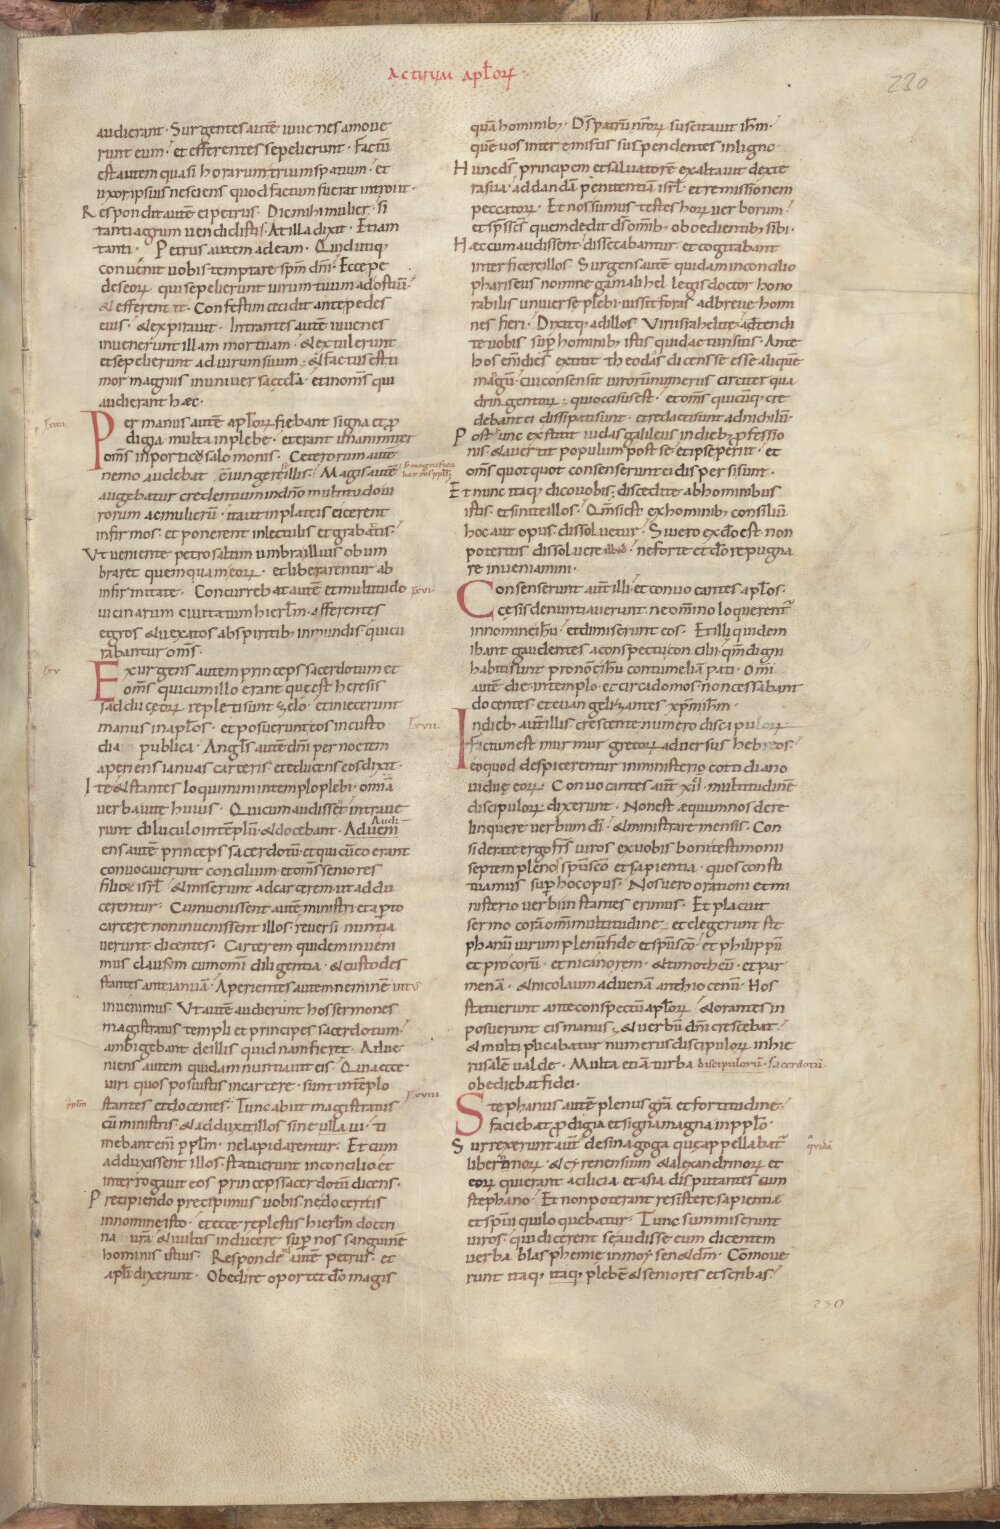 Actuum aplorꝝ
230
audierant · Surgentes autē iuuenes amoue
runt eum · et efferentes sepelierunt · Factū
est autem quasi horarum trium spatium · et
uxor ipsius nesciens quod factum fuerat introiit ·
Respondit autē ei petrus · Dic mihi mulier · si
tanti agrum uendidistis · At illa dixit · Etiam
tanti · Petrus autem ad eam · Quid utiq;
conuenit uobis temptare spm̄ dn̄i · Ecce pe
des eorꝝ qui sepelierunt uirum tuum ad ostiū ·
& efferent te · Confestim cecidit ante pedes
eius · & expirauit · Intrantes autē iuuenes
inuenerunt illam mortuam · & extulerunt
et sepelierunt ad uirum suum · & factus est ti
mor magnus in uniuersa ęcctla · et in om̄s qui
audierant hæc ·
Per manus autē aplorꝝ fiebant signa et ꝓ
digia multa in plebe · et erant unanimiter
om̄s in porticu salomonis · Ceterorum autē
nemo audebat c̄iungere illis · Magis autē
sed magnifica
bat eos ppls ·
augebatur credentium in dn̄o multitudo ui
rorum ac mulierū · ita ut in plateis eicerent
infirmos · et ponerent in lectulis et grabatis ·
Ut ueniente petro saltim umbra illius obum
braret quemquam eorꝝ · et liberarentur ab
infirmitate · Concurrebat autē et multitudo
uicinarum ciuitatum hierlm̄ · afferentes
egros & uexatos a spiritib; inmundis · qui cu
rabantur om̄s ·
Exurgens autem princeps sacerdotum et
om̄s qui cum illo erant que est heresis
sadduceorꝝ repleti sunt zelo · et iniecerunt
manus in aplos · et posuerunt eos in custo
dia publica · Angls autē dn̄i per noctem
aperiens ianuas carceris et educens eos dixit ·
Ite & stantes loquimini in templo plebi · omīa
uerba uitę huius · Qui cum audissent intraue
runt diluculo in templū · & docebant · Adueni
ens autē princeps sacerdotū et qui cū eo erant
conuocauerunt concilium et om̄s seniores
filiorꝝ isrl · & miserunt ad carcerem ut addu
cerentur · Cum uenissent autē ministri et aꝑto
carcere non inuenissent illos · reuersi nuntia
uerunt dicentes · Carcerem quidem inueni
mus clausum cum omni diligentia · & custodes
stantes ante ianuā · Aperientes autem neminē intus
inuenimus · Ut autē audierunt hos sermones
magistratus templi et principes sacerdotum ·
ambigebant de illis quidnam fieret · Adue
niens autem quidam nuntiauit eis · Quia ecce
uiri quos posuistis in carcere · sunt in tēplo
stantes et docentes · Tunc abiit magistratus
cū ministris & adduxit illos sine ulla ui · ti
mebant enī pplm̄ · ne lapidarentur · Et cum
adduxissent illos · statuerunt in concilio · et
interrogauit eos princeps sacerdotū dicens ·
Precipiendo precepimus uobis · ne doceretis
in nomine isto · et ecce replestis hierlm̄ doctri
na ur̄a & uultis inducere suꝑ nos sanguinē
hominis istius · Respondens autē petrus · et
apli dixerunt · Obedire oportet dō magis
quā hominib; · Ds̄ patrū nr̄orꝝ suscitauit ihm̄ ·
quē uos interemistis suspendentes in ligno ·
Hunc ds̄ principem et saluatorē exaltauit dexte
ra sua · ad dandā penitentiā isrl · et remissionem
peccatorꝝ · Et nos sumus testes horꝝ uerborum ·
et sp̄s sc̄s quem dedit ds̄ omib; oboedientib; sibi ·
Hæc cum audissent · dissecabantur · et cogitabant
interficere illos · Surgens autē quidam in concilio
phariseus nomine gamalihel · legis doctor hono
rabilis uniuersę plebi · iussit foras ad breue homi
nes fieri · Dixitq; ad illos · Uiri israhelite · adtendi
te uobis suꝑ hominib; istis quid acturi sitis · Ante
hos enī dies extitit theodas dicens se esse aliquē
magnū · cui consensit uirorū numerus circiter qua
dringentorꝝ · qui occisus est · et om̄s quicūq; cre
debant ei dissipati sunt · et redacti sunt ad nichilū ·
Post hunc exstitit iudas galileus in dieb; ꝓfessio
nis & auertit populum post se · et ipse periit · et
om̄s quotquot consenserunt ei dispersi sunt ·
Et nunc itaq; dico uobis · discedite ab hominibus
istis · et sinite illos · Qm̄ si est ex hominib; consiliū
hoc aut opus · dissoluetur · Si uero ex dō est · non
poteritis dissoluere illud · ne forte et dō repugna
re inueniamini ·
Consenserunt autē illi · et conuocantes aplos ·
cesis denuntiauerunt · ne omnino loquerent̄
in nomine ihū · et dimiserunt eos · Et illi quidem
ibant gaudentes a conspectu concilii · qm̄ digni
habiti sunt pro nōe ihū contumeliā pati · Omī
autē die in templo · et circa domos non cessabant
docentes · et euangelizantes xp̄m ihm̄ ·
In dieb; autē illis crescente numero discipulorꝝ
factum est murmur grecorꝝ aduersus hebreos ·
eo quod despicerentur in ministerio cottidiano
uidue eorꝝ · Conuocantes autē xii · multitudinē
discipulorꝝ dixerunt · Non est æquum nos dere
linquere uerbum dī · & ministrare mensis · Con
siderate ergo frs̄ uiros ex uobis boni testimonii
septem plenos sp̄u sc̄o et sapientia · quos consti
tuamus suꝑ hoc opus · Nos uero orationi et mi
nisterio uerbi instantes erimus · Et placuit
sermo corā omni multitudine · et elegerunt ste
phanū uirum plenū fide et sp̄u sc̄o · et philippū
et procorū · et nicanorem · & timotheū · et par
menā · & nicolaum aduenā anthiocenū · Hos
statuerunt ante conspectū aplorꝝ · & orantes in
posuerunt eis manus · & uerbū dn̄i crescebat ·
& multiplicabatur numerus discipulorꝝ in hie
rusalē ualde · Multa etiā turba discipulorū · sacerdotū
obediebat fidei ·
Stephanus autē plenus grā et fortitudine ·
faciebat ꝓdigia et signa magna in pplo ·
Surrexerunt autē de sinagoga que appellabat̄
quidā
libertinorꝝ · & cyrenensium & alexandrinorꝝ et
eorꝝ qui erant a cilicia et asia disputantes cum
stephano · Et non poterant resistere sapientiæ
et sp̄ui qui loquebatur · Tunc summiserunt
uiros · qui dicerent se audisse eum dicentem
uerba blasphemie in moysen & dm̄ · Cōmoue
runt itaq; itaq; plebē & seniores et scribas ·
230